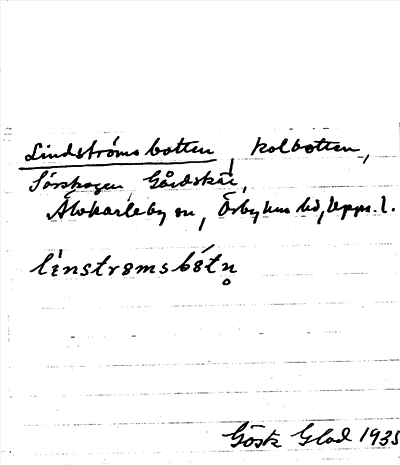 Lindströmsbotten, kolbotten,
Sörskogen, Gårdskär,
Älvkarleby sn, Örbyhus hd, Upps. l.
li̍nstrømsbòtn̥
Gösta Glad 1935